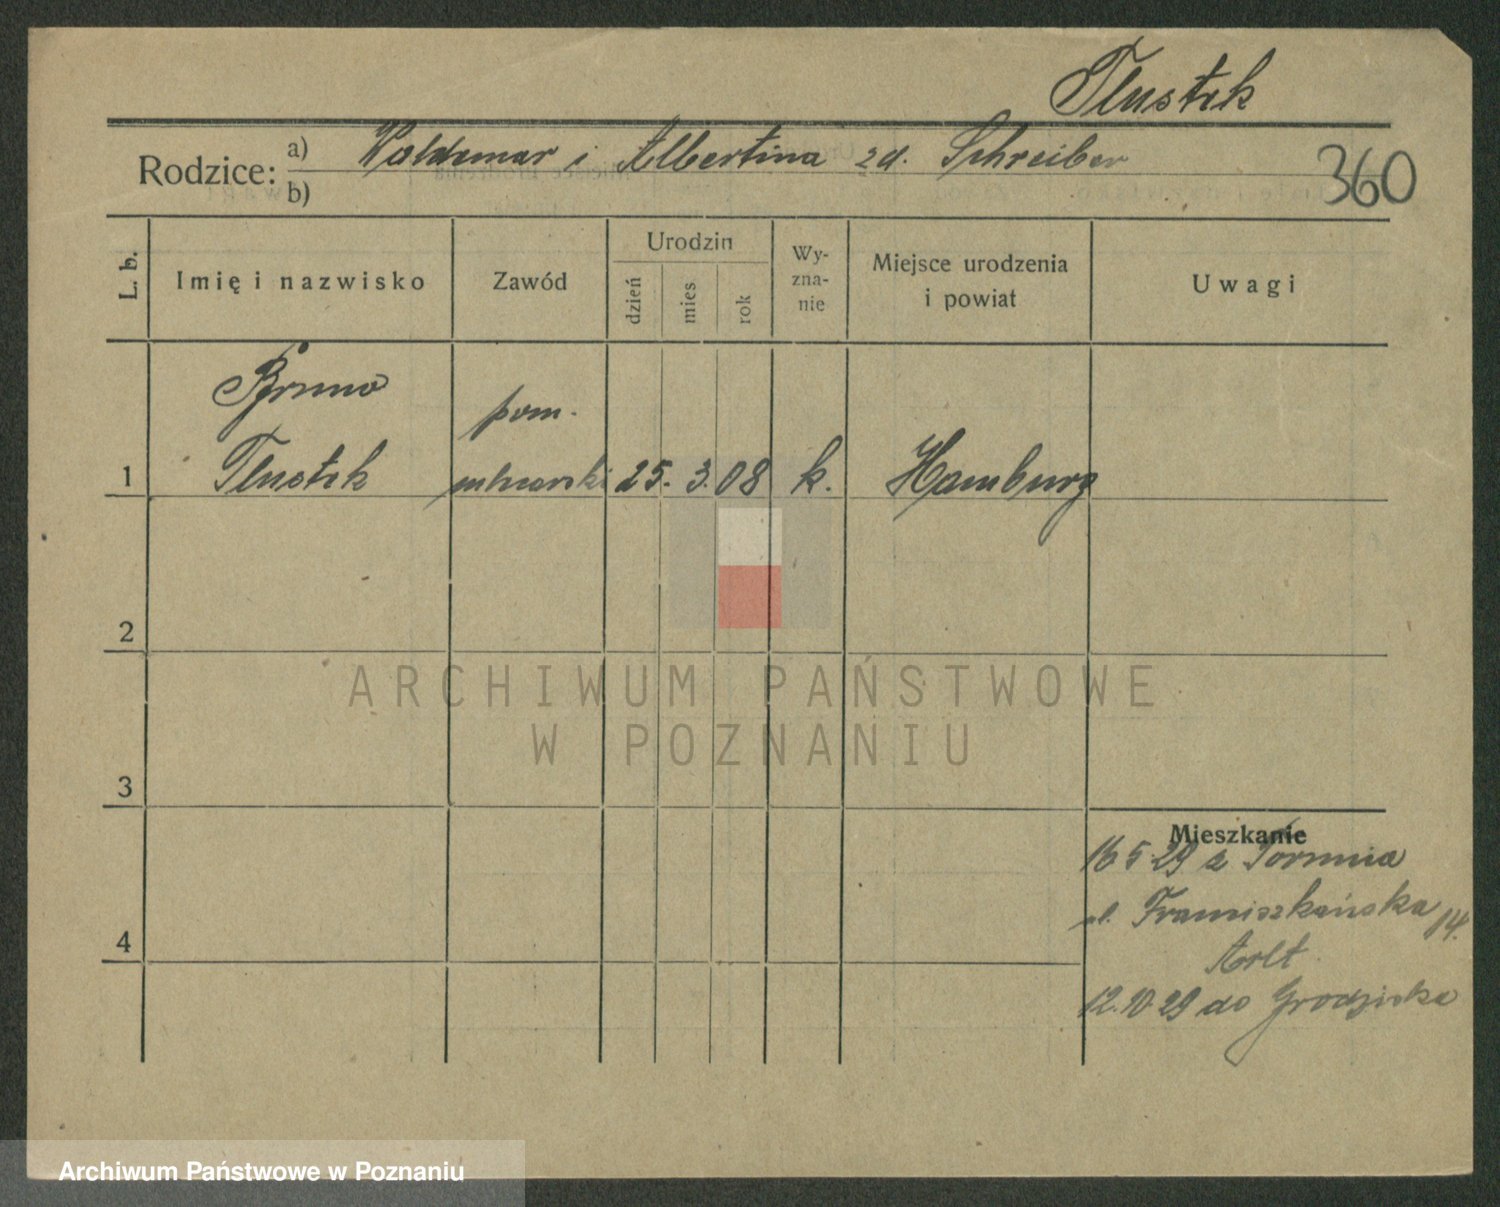 Tlustek
Rodzice: a) Waldemar i Albertina zd. Schreiber
b)
360
L. b. Imię i nazwisko Zawód Urodzin dzień mies rok Wy-zna-nie Miejsce urodzenia i powiat Uwagi
Bruno pom.
1 Tlustek mleczarski 25. 3. 08 k. Hamburg
2
ARCHIWUM PAŃSTWOWE
W POZNANIU
3
Mieszkanie
16 5 29 z Torunia
ul. Franciszkańska 14.
4 Arlt
12.10 29 do Grodziska
Archiwum Państwowe w Poznaniu